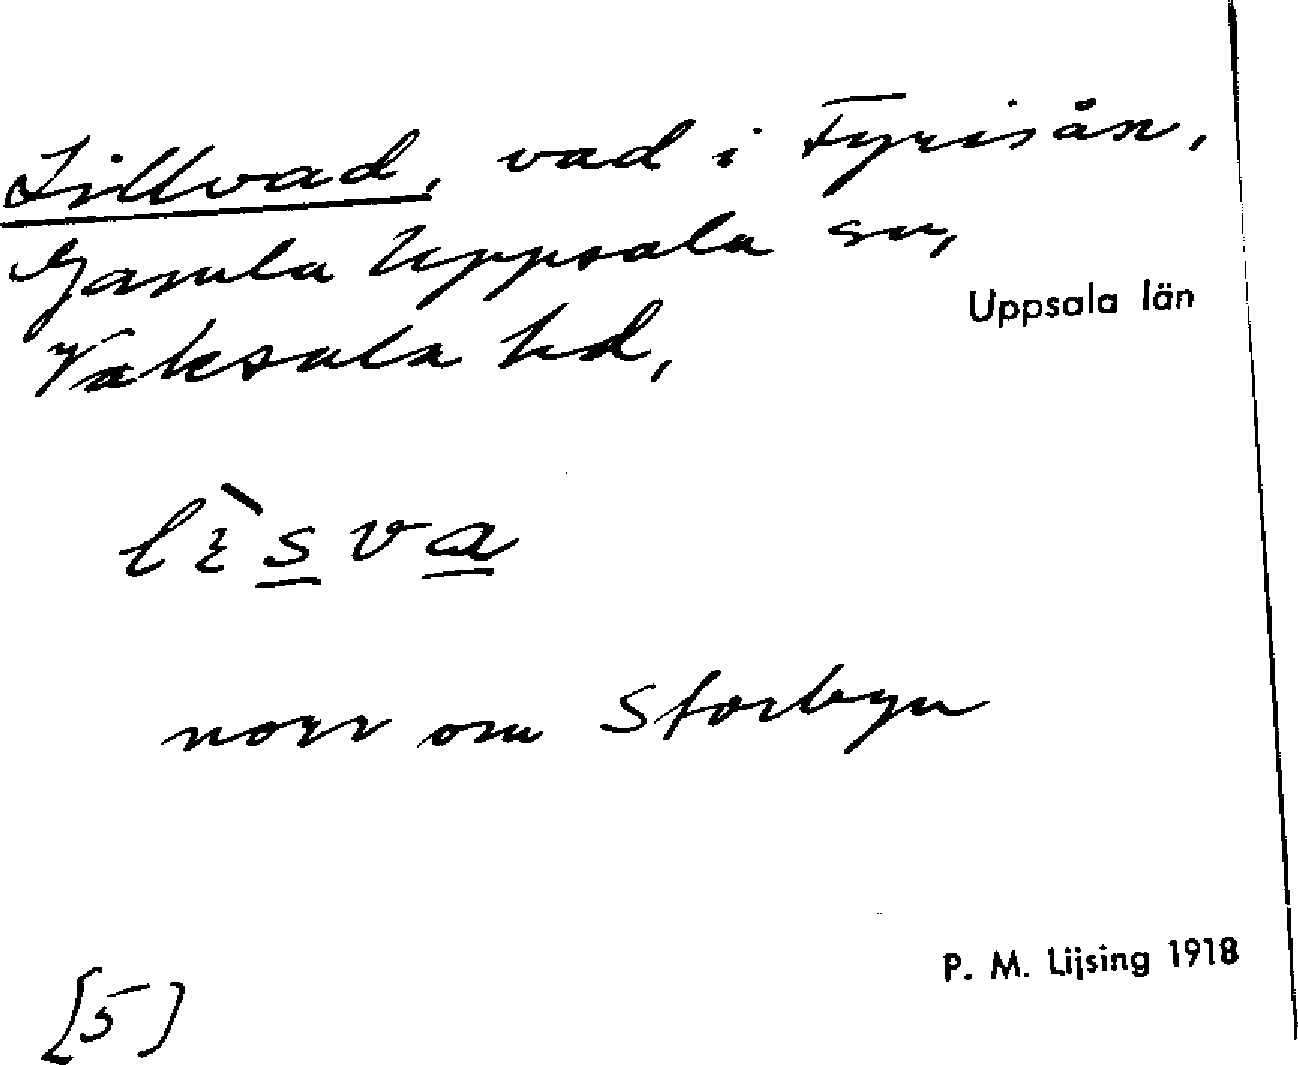 Lillvad, vad i Fyrisån,
Gamla Uppsala sn,
Uppsala län
Vaksala hd,
lìsva
norr om Storbyn
P. M. Lijsing 1918
[5]